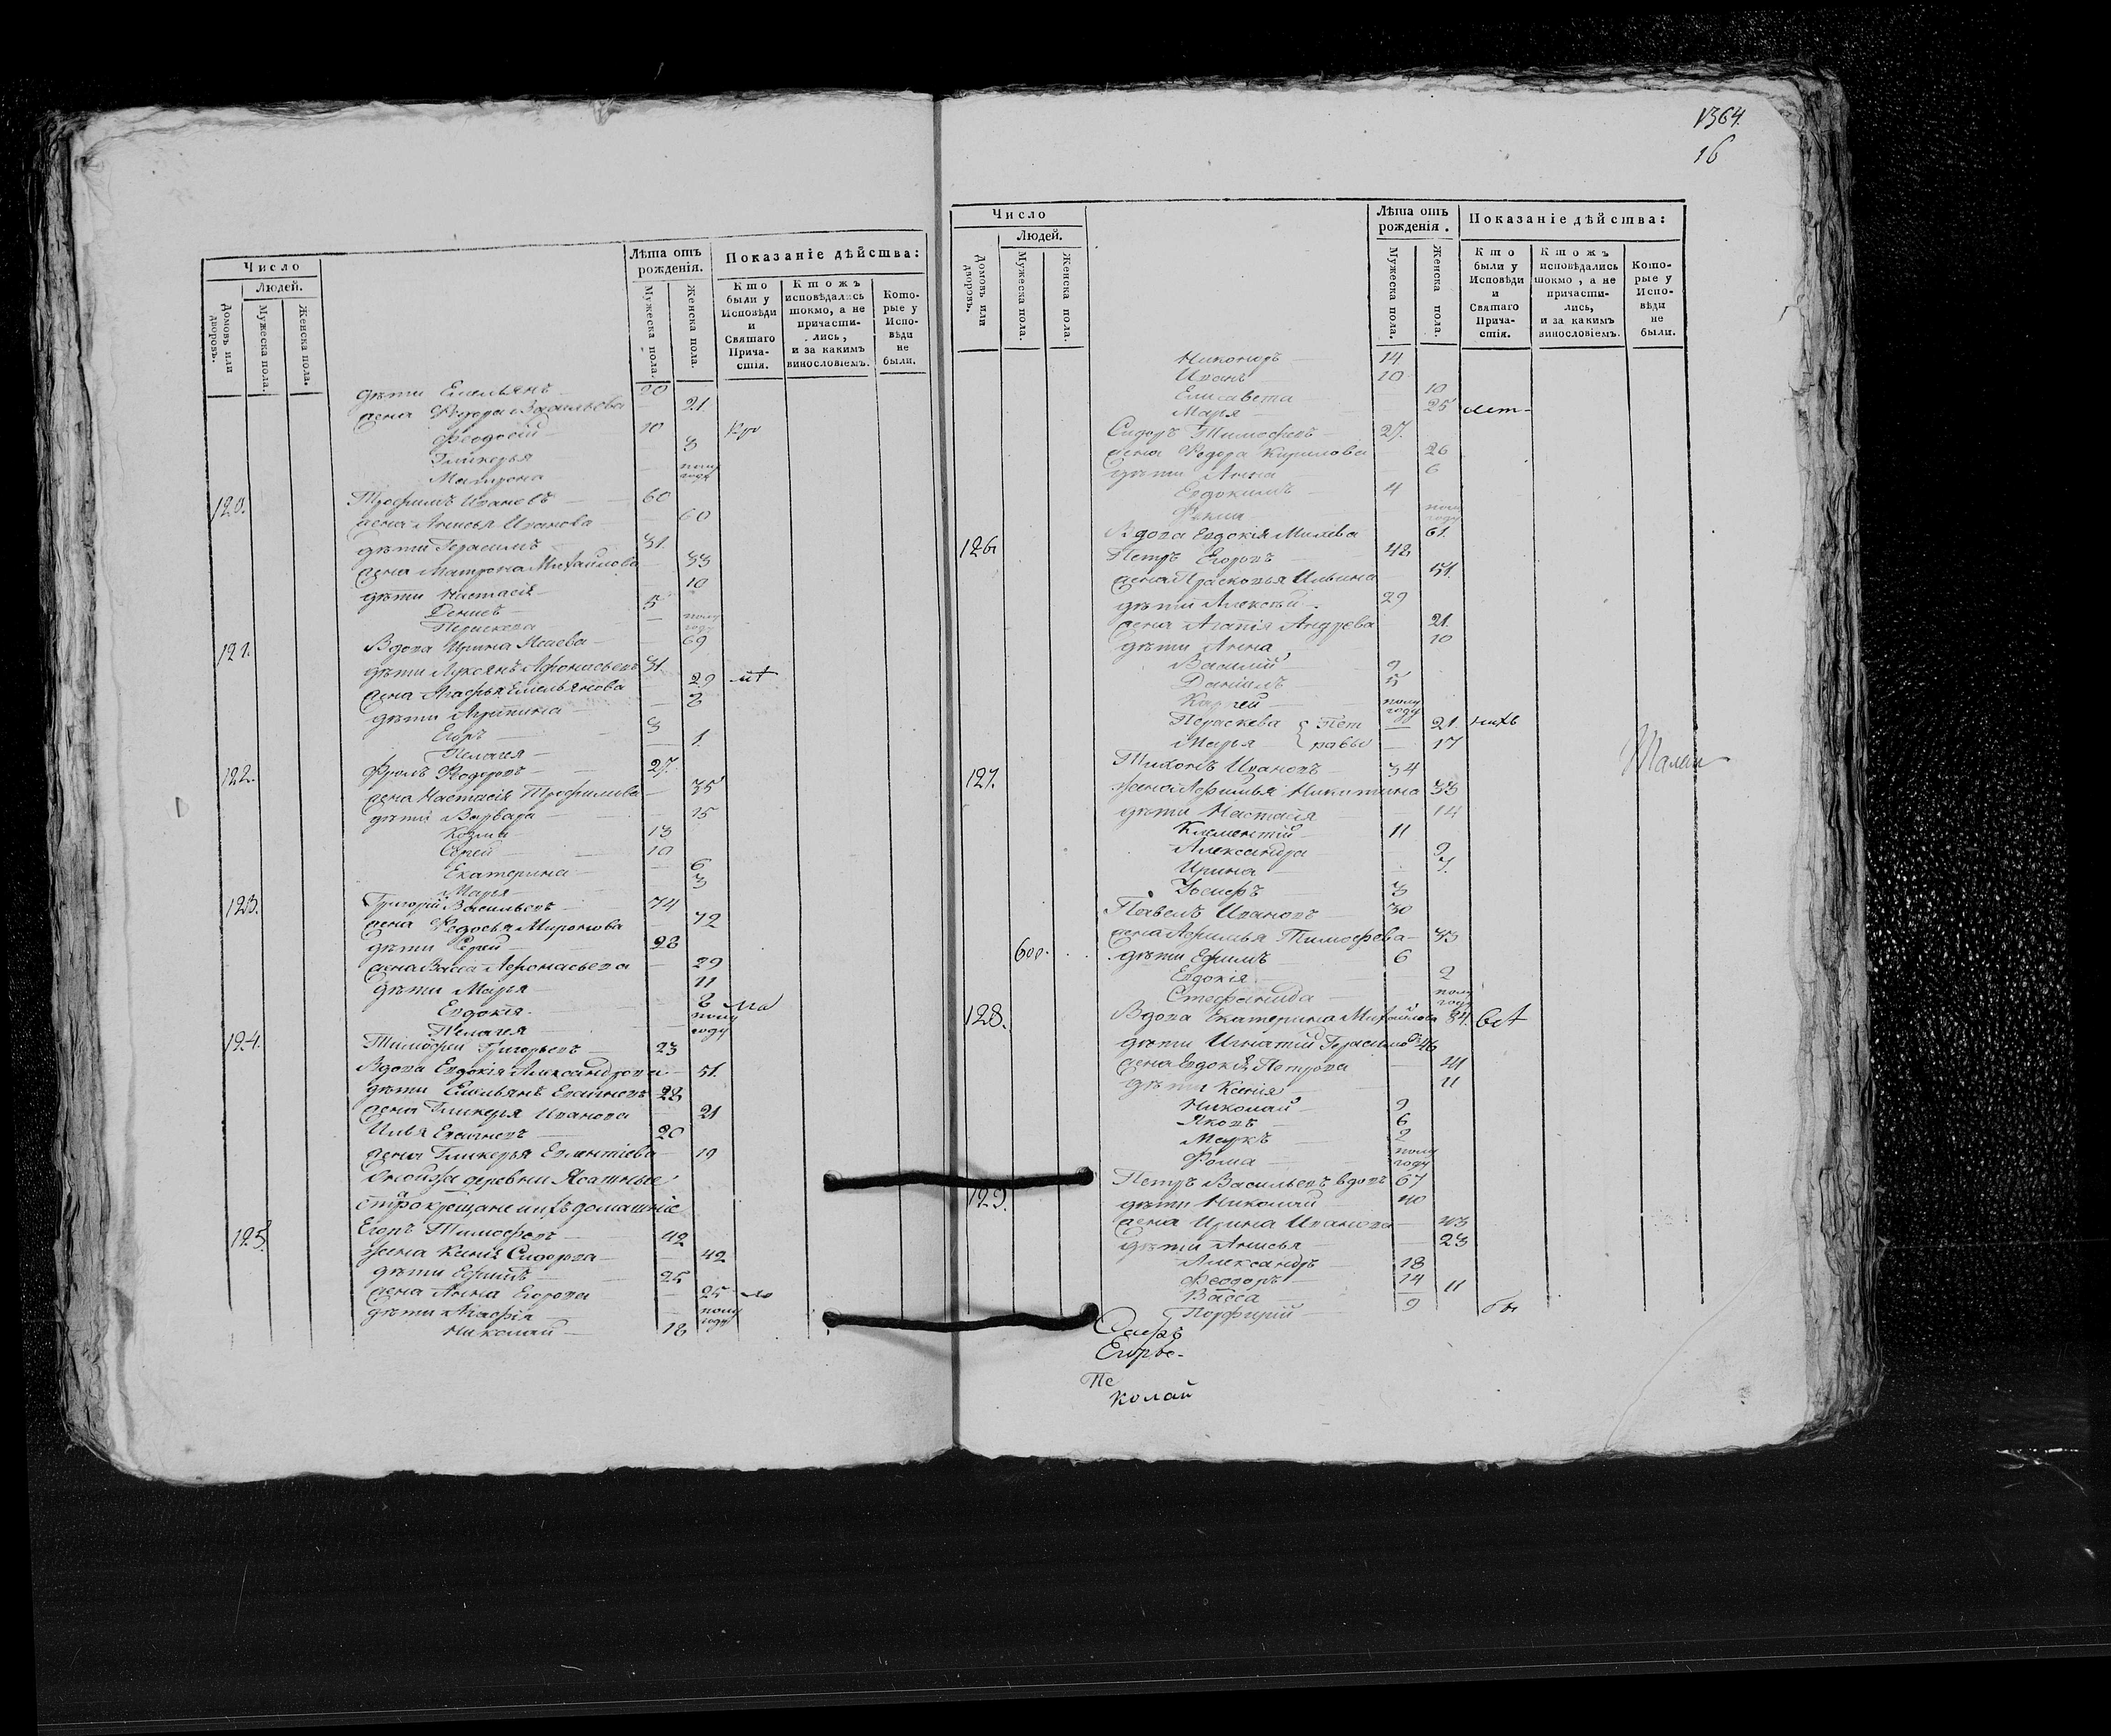 Число
Людей.
Домовъ или дворовъ.
Мужеска пола.
Женска пола.
Лѣта отъ рожденія.
Мужеска пола.
Женска пола.
Показаніе дѣйства:
Кто были у Исповѣди и Святаго Причастія.
Ктожъ исповѣдались токмо, а не причастились, и за какимъ винословіемъ.
Которые у Исповѣди не были.
дѣти Емельянъ 20
жена Федора Васильева 21
Феодосій 10
Гликерья 3
Матрона полу году
120. Трофимъ Ивановъ 60
жена Анисья Иванова 60
дѣти Герасимъ 31
жена Матрона Михайлова 33
дѣти Настасія 10
Денисъ 5
Пераскева полу году
121. Вдова Ирина Исаева 69
дѣти Лукіянъ Афонасьевъ 31
жена Агафья Емельянова 29
дѣти Агрипина
Егоръ 3
Пелагея 1
122. Фролъ Федоровъ 27
жена Настасія Трофимова 35
дѣти Варвара 15
Козма 13
Сергей 10
Екатерина 6
Марья 3
123. Григорій Васильевъ 74
жена Федосья Миронова 72
дѣти Сергей 28
жена Васса Афонасьева 29
дѣти Марья 11
Евдокія 8
Пелагея полу году
124. Тимофей Григорьевъ 23
Вдова Евдокія Александрова 51
дѣти Емельянъ 28
жена Гликерья Иванова 21
Илья 20
жена Гликерья 19
Оной же деревни Ясашные
старокрещане и ихъ домашніе
125. Егоръ Тимофеевъ 42
жена Ксенія Сидорова 42
дѣти Ефимъ 25
жена Анна Егорова 25
дѣти Агафія полу году
Николай 18
1364.
16
Число
Людей.
Домовъ или дворовъ.
Мужеска пола.
Женска пола.
Лѣта отъ рожденія.
Мужеска пола.
Женска пола.
Показаніе дѣйства:
Кто были у Исповѣди и Святаго Причастія.
Ктожъ исповѣдались токмо, а не причастились, и за какимъ винословіемъ.
Которые у Исповѣди не были.
Никоноръ 14
Иванъ 10
Елисавета 10
Марья 25
Сидоръ Тимофеевъ 27
жена Федора Кирилова 26
дѣти Анна 6
Евдокимъ 4
Фекла полу году
126 Вдова Евдокія 61
Петръ Егоровъ 48
жена Прасковья Ильина 51
дѣти Алексѣй 29
жена Агапія Андреева 21
дѣти Анна 10
Василій 9
Даніилъ 5
полу году
Пераскева { Пет 21
Марья { ровы 17
127. Тихонъ Ивановъ 34
жена Афимья Никитина 33
дѣти Настасія 14
Климентій 11
Александра 9
Ирина 7
Іосифъ 3
Павелъ Ивановъ 30
жена Афимья Тимофеева 33
600. дѣти Ефимъ 6
Евдокія 2
Стефанида полу году
128. Вдова Екатерина Михайлова 84
дѣти Игнатій 46
жена Евдокія Петрова 41
дѣти Ксенія 11
Николай 9
Яковъ 6
Маркъ 2
Фома полу году
129. Петръ Васильевъ вдовъ 67
дѣти Николай 40
жена Ирина Иванова 43
дѣти Анисья 23
Александръ 18
Феодоръ 14
Васса 11
Порфирій 9
колай